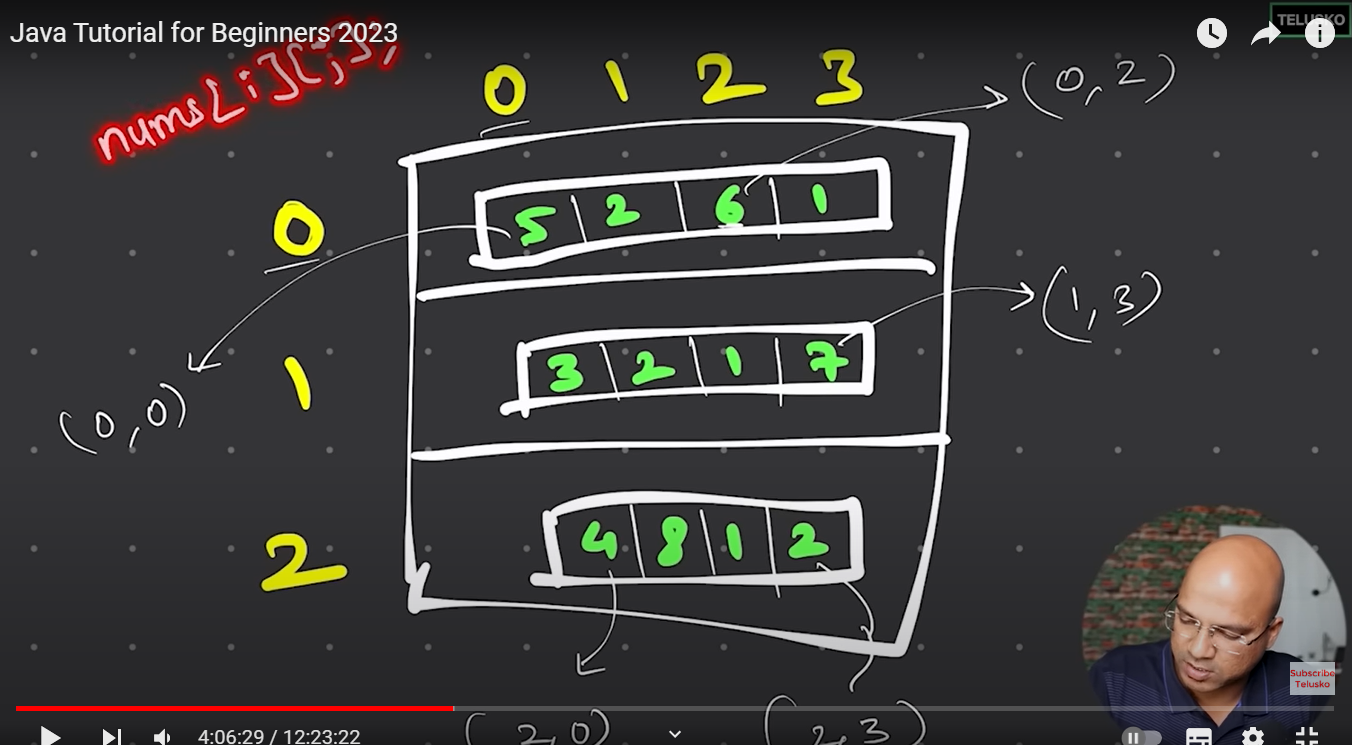 Java Tutorial for Beginners 2023
TELUSKO
nums[i][j];
0 1 2 3
(0,2)
0
5 2 6 1
(1,3)
1
3 2 1 7
(0,0)
2
4 8 1 2
Subscribe
Telusko
(2,0) (2,3)
4:06:29 / 12:23:22